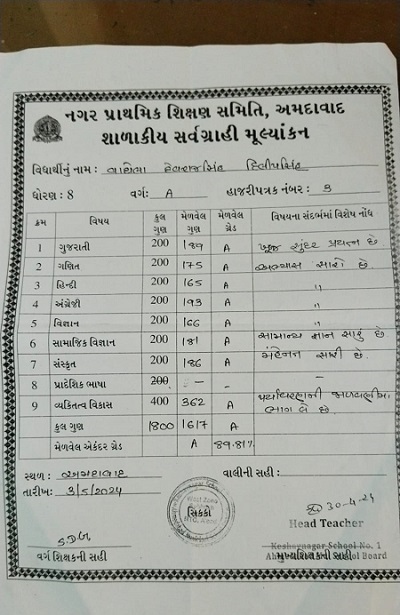 નગર પ્રાથમિક શિક્ષણ સમિતિ, અમદાવાદ
શાળાકીય સર્વગ્રાહી મૂલ્યાંકન
વિદ્યાર્થીનું નામ : વાઘેલા દિલીપસિંહ
ધોરણ : 8 વર્ગ: A હાજરીપત્રક નંબર : 3
ક્રમ વિષય કુલ ગુણ મેળવેલ ગુણ મેળવેલ ગ્રેડ વિષયના સંદર્ભમાં વિશેષ નોંધ
1 ગુજરાતી 200 189 A ખૂબ સુંદર પ્રયત્ન છે.
2 ગણિત 200 175 A અભ્યાસ સારો છે.
3 હિન્દી 200 165 A "
4 અંગ્રેજી 200 193 A "
5 વિજ્ઞાન 200 166 A "
6 સામાજિક વિજ્ઞાન 200 181 A સામાન્ય જ્ઞાન સારું છે
7 સંસ્કૃત 200 186 A મહેનત સારી છે.
8 પ્રાદેશિક ભાષા 200 - - -
9 વ્યક્તિત્વ વિકાસ 400 362 A પર્યાવરણની જાળવણીમાં ભાગ લે છે.
કુલ ગુણ 1800 1617 A
મેળવેલ એકંદર ગ્રેડ A 89.81%
સ્થળ : અમદાવાદ વાલીની સહી :
તારીખ: 3/5/2024
સિક્કો
30-4-24
Head Teacher
Keshavnagar School No. 1
School Board
વર્ગ શિક્ષકની સહી મુખ્યશિક્ષકની સહી